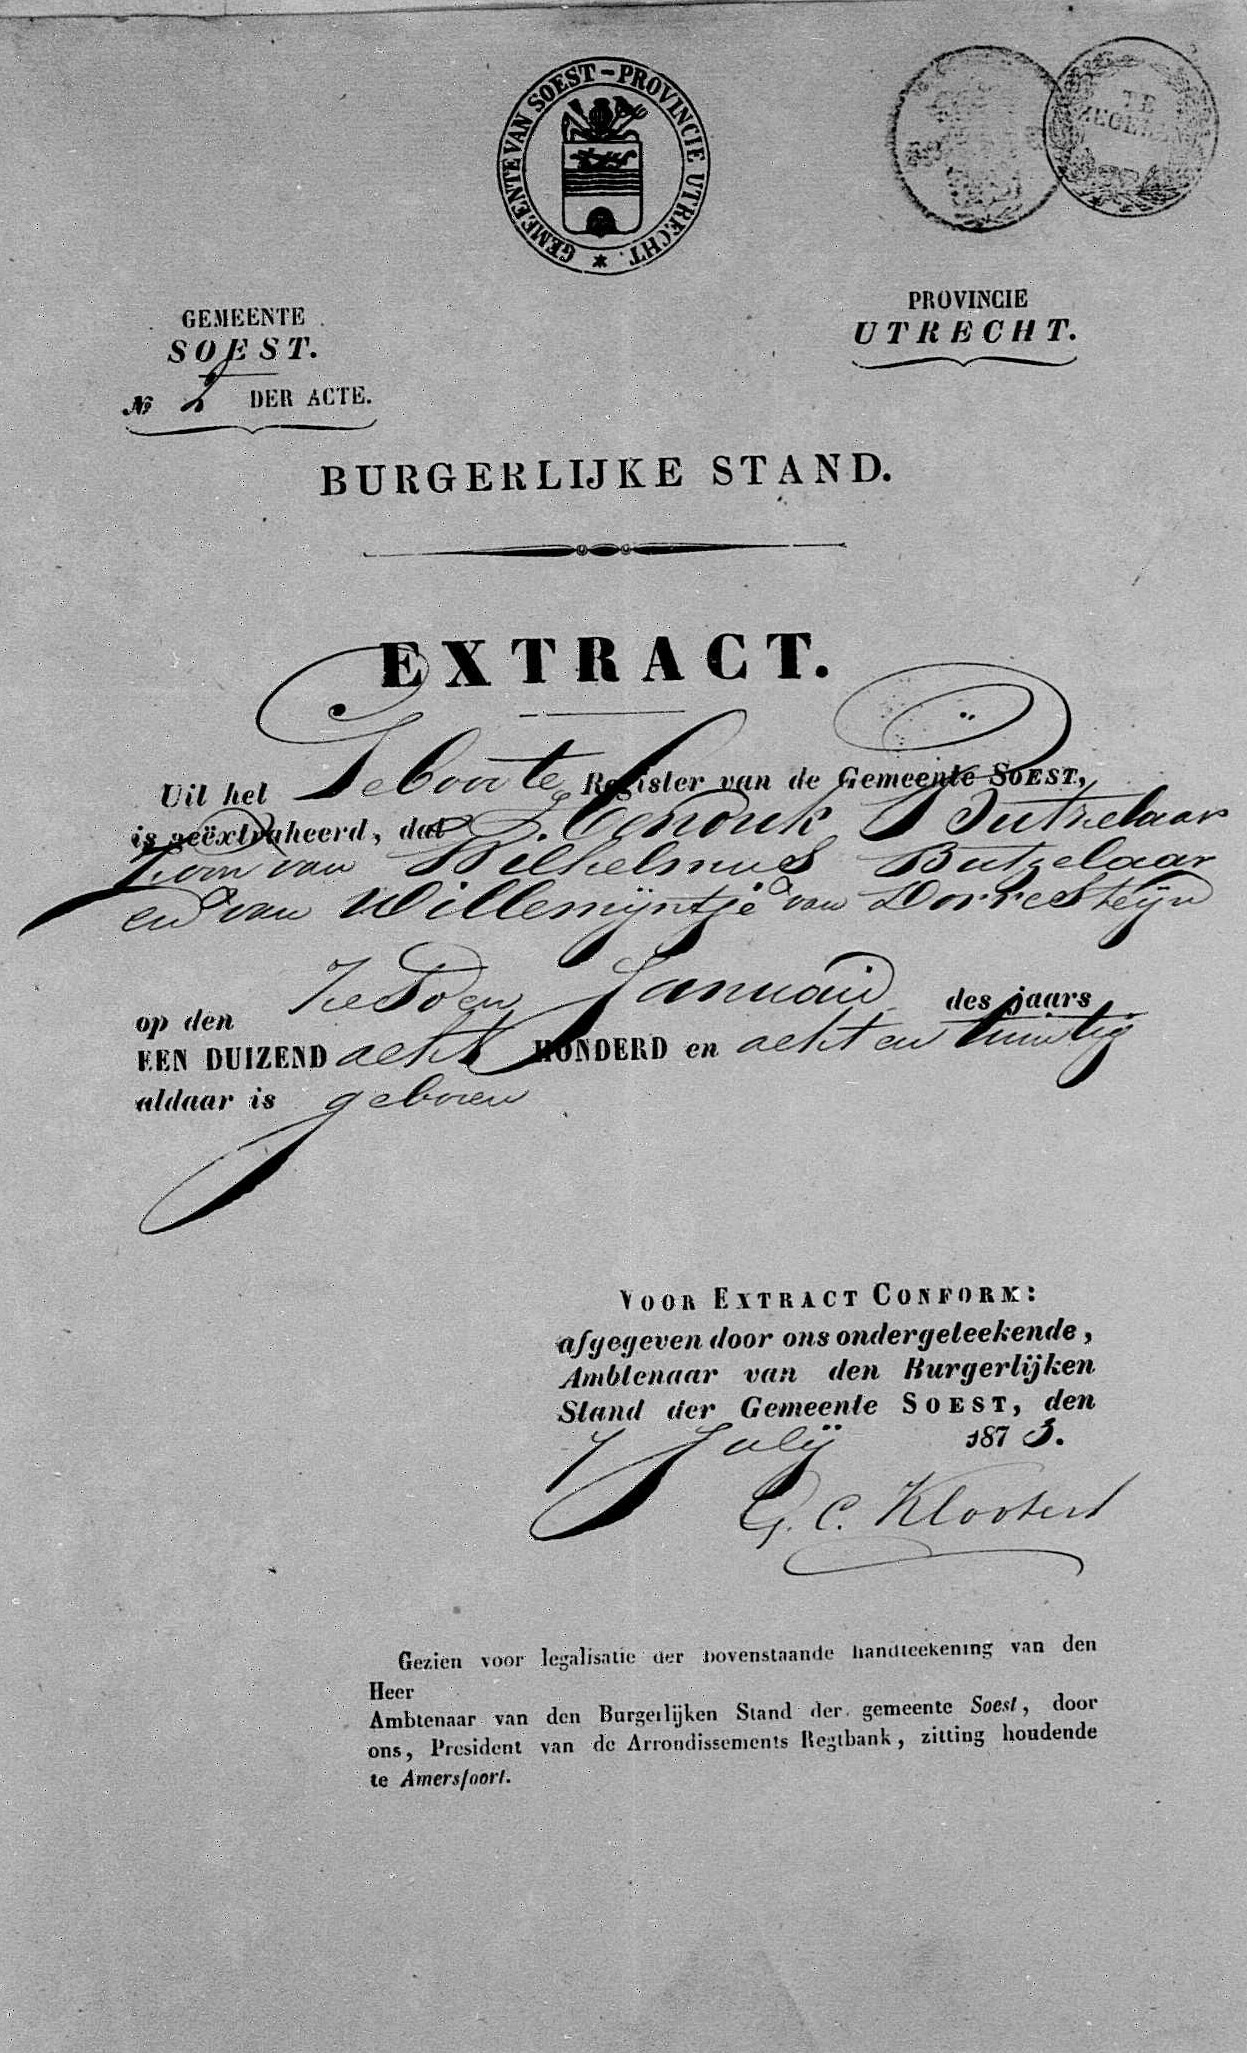 GEMEENTE VAN SOEST - PROVINCIE UTRECHT.
TE
ZEGELEN
GEMEENTE
SOEST.
№ 2 DER ACTE.
PROVINCIE
UTRECHT.
BURGERLIJKE STAND.
EXTRACT.
Uit het Geboorte Register van de Gemeente SOEST,
is geëxtraheerd, dat Hendrik Butzelaar
Zoon van Wilhelmus Butzelaar
en van Willemijntje van Dorresteijn
op den Zesden Januarij des jaars
EEN DUIZEND acht HONDERD en acht en twintig
aldaar is geboren
VOOR EXTRACT CONFORM:
afgegeven door ons ondergeteekende,
Ambtenaar van den Burgerlijken
Stand der Gemeente SOEST, den
7 Julij 1873.
G. C. Kloosters
Gezien voor legalisatie der bovenstaande handteekening van den
Heer
Ambtenaar van den Burgerlijken Stand der gemeente Soest, door
ons, President van de Arrondissements Regtbank, zitting houdende
te Amersfoort.